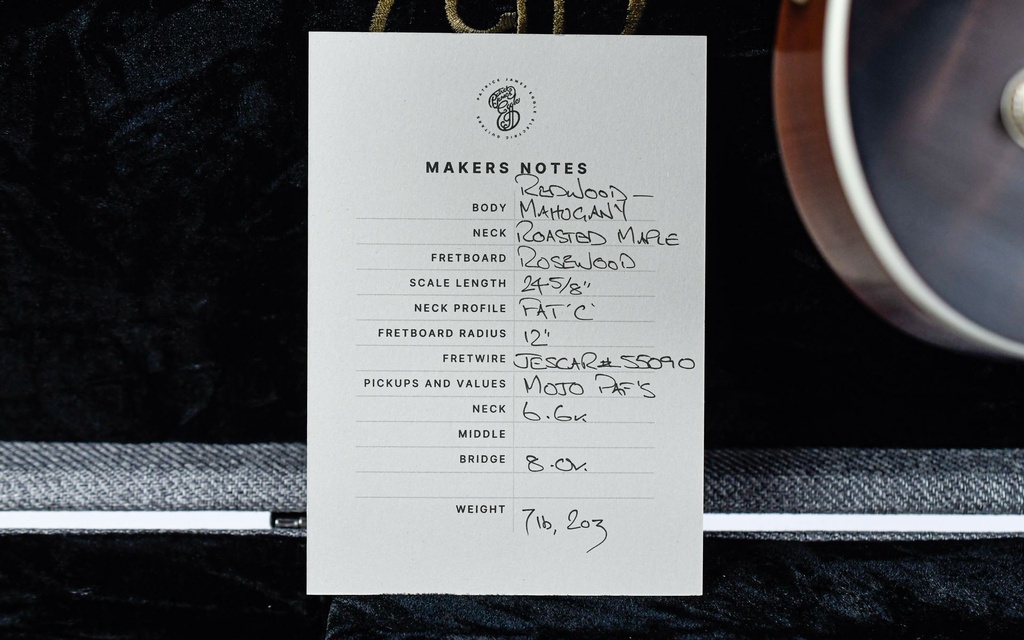 PATRICK JAMES EGGLE ELECTRIC GUITARS
MAKERS NOTES
REDWOOD –
BODY MAHOGANY
NECK ROASTED MAPLE
FRETBOARD ROSEWOOD
SCALE LENGTH 24 5/8"
NECK PROFILE FAT 'C'
FRETBOARD RADIUS 12"
FRETWIRE JESCAR # 55090
PICKUPS AND VALUES MOJO PAF'S
NECK 6.6K
MIDDLE
BRIDGE 8.0K
WEIGHT 7lb, 2oz